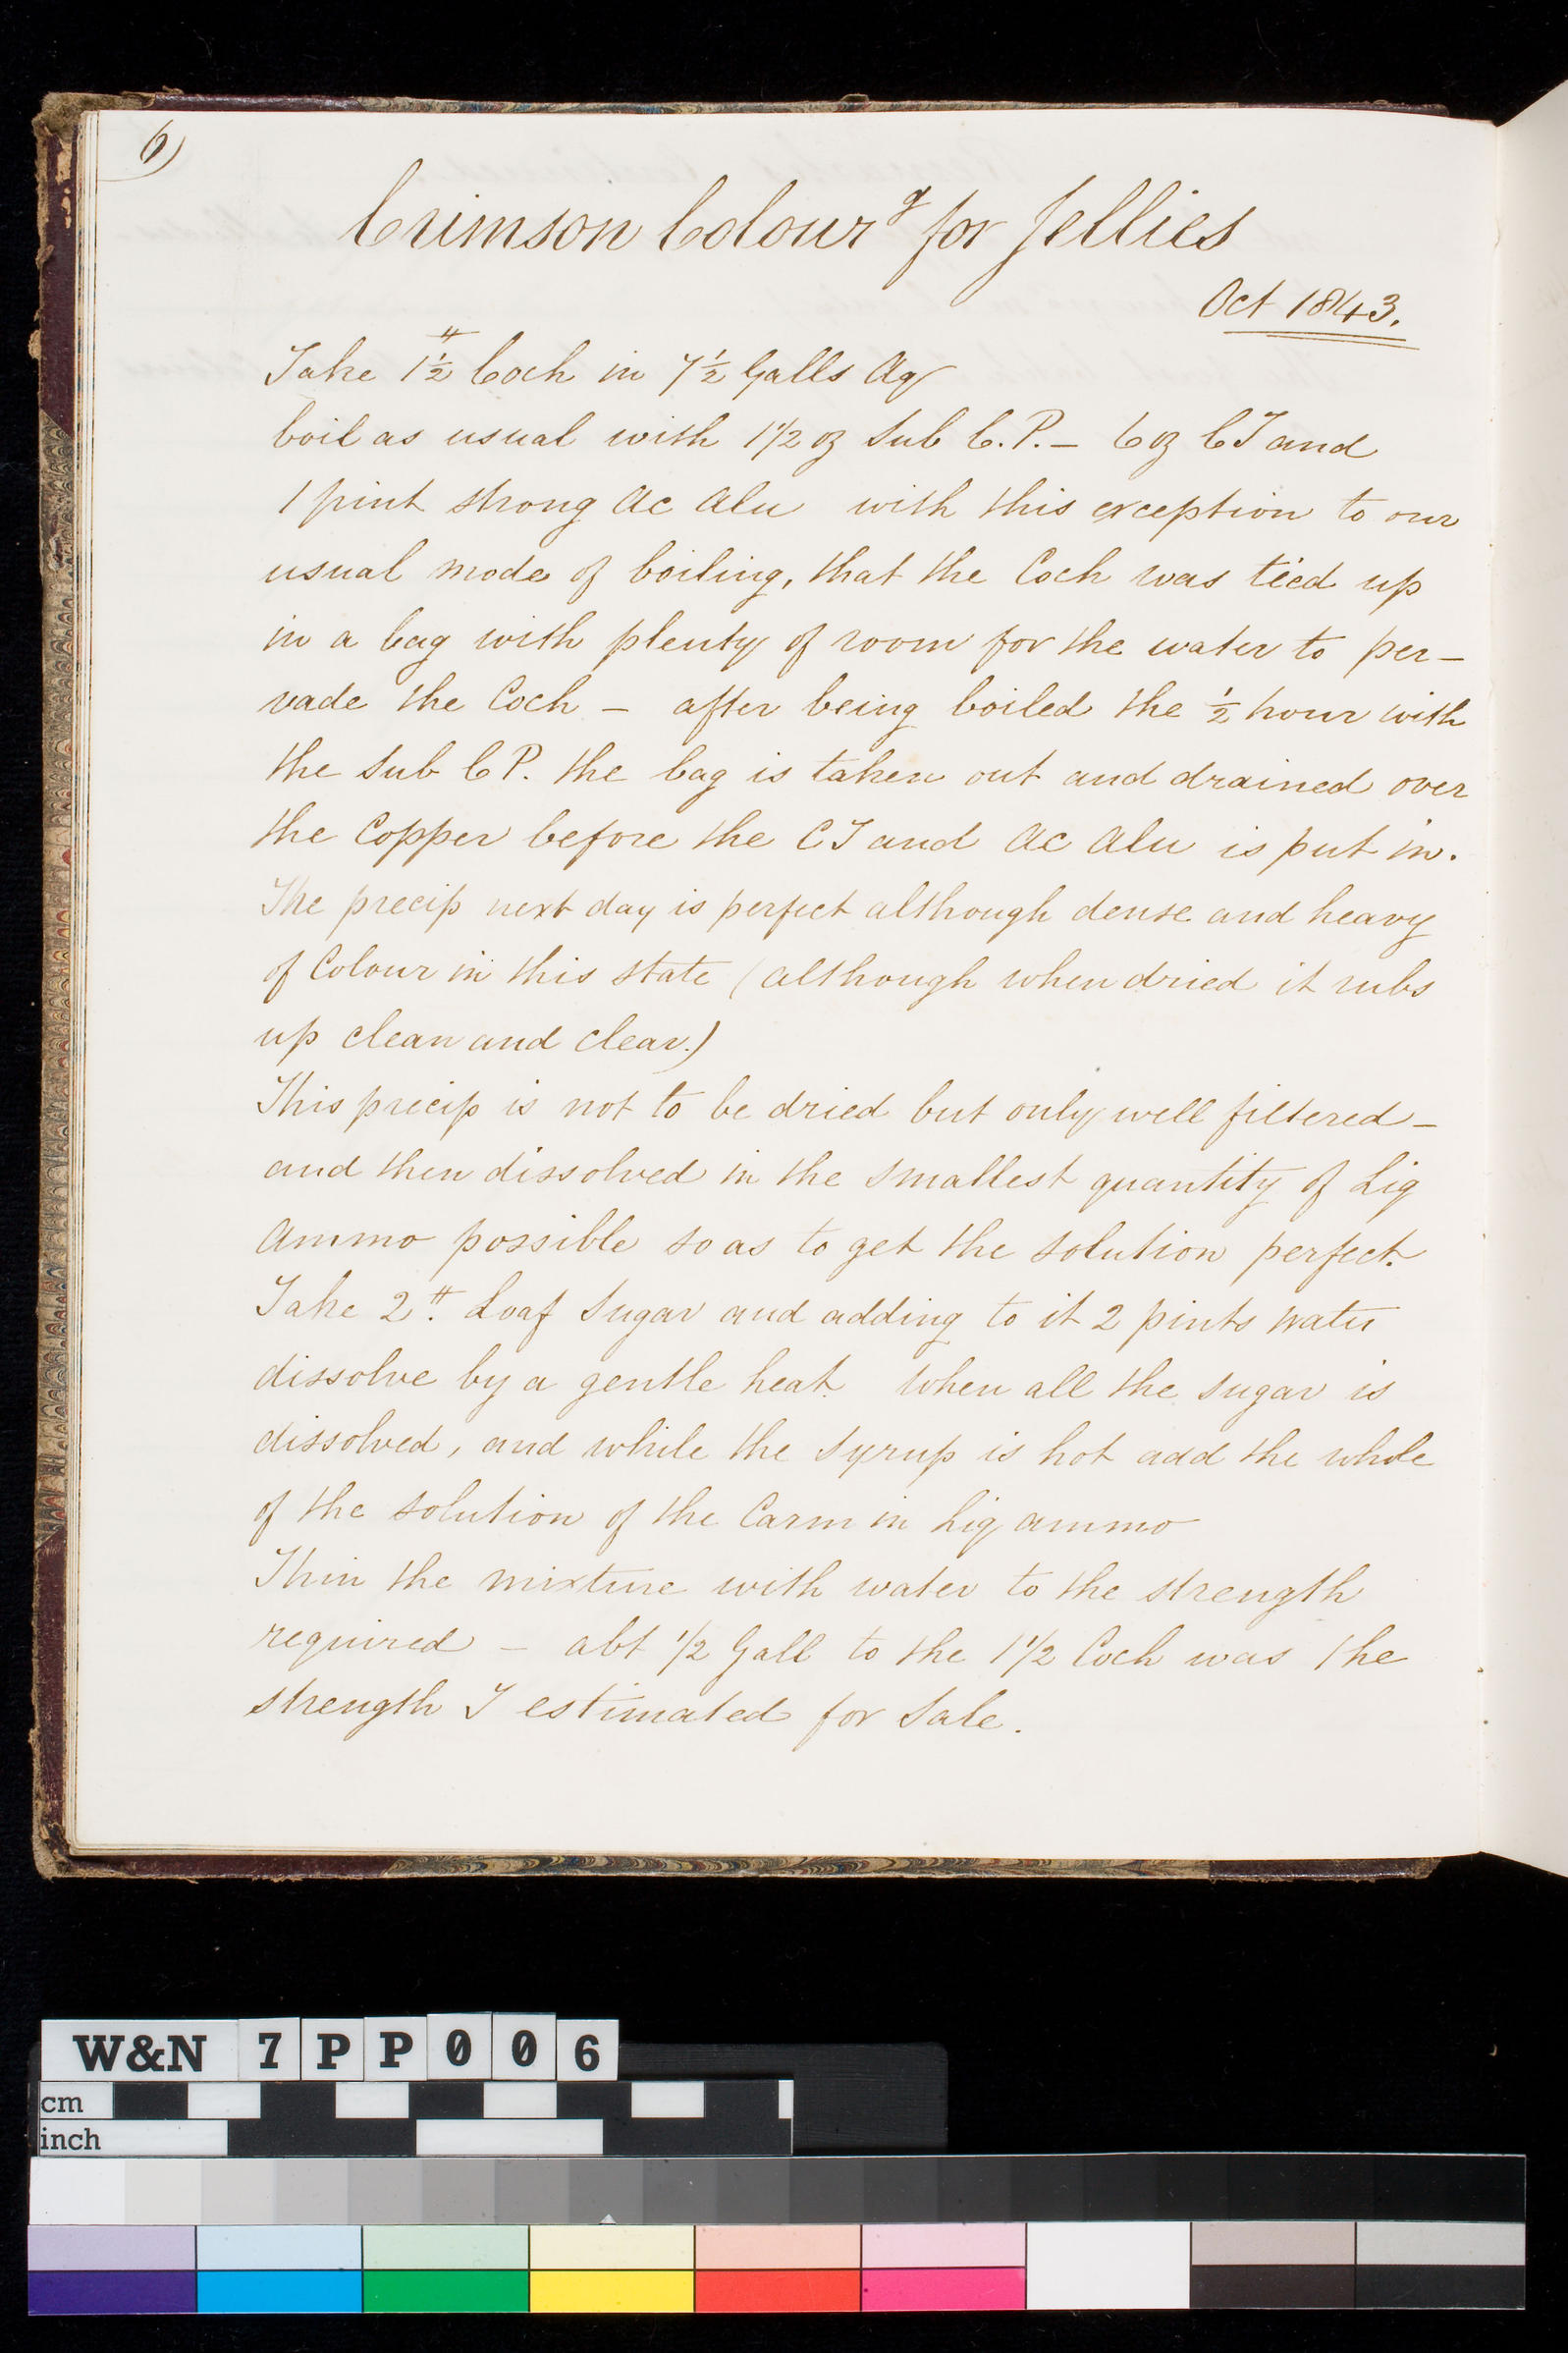 6)
Crimson Colourg for Jellies
Oct 1843.
Take 1½ # Coch in 7½ Galls Aq
boil as usual with 1 1/2 oz Sub C.P. – 6 oz CT and
1 pint strong Ac Alu with this exception to our
usual mode of boiling, that the Coch was tied up
in a bag with plenty of room for the water to per–
vade the Coch – after being boiled the ½ hour with
the Sub C P. the bag is taken out and drained over
the Copper before the CT and Ac Alu is put in.
The precip next day is perfect although dense and heavy
of Colour in this state (although when dried it rubs
up clean and clear.)
This precip is not to be dried but only well filtered –
and then dissolved in the smallest quantity of Liq
Ammo possible so as to get the solution perfect.
Take 2 #. Loaf Sugar and adding to it 2 pints water
dissolve by a gentle heat. When all the sugar is
dissolved, and while the Syrup is hot add the whole
of the solution of the Carm in Liq ammo
Thin the mixture with water to the strength
required – abt 1/2 Gall to the 1 1/2 Coch was the
strength I estimated for Sale.
W&N 7PP006
cm
inch